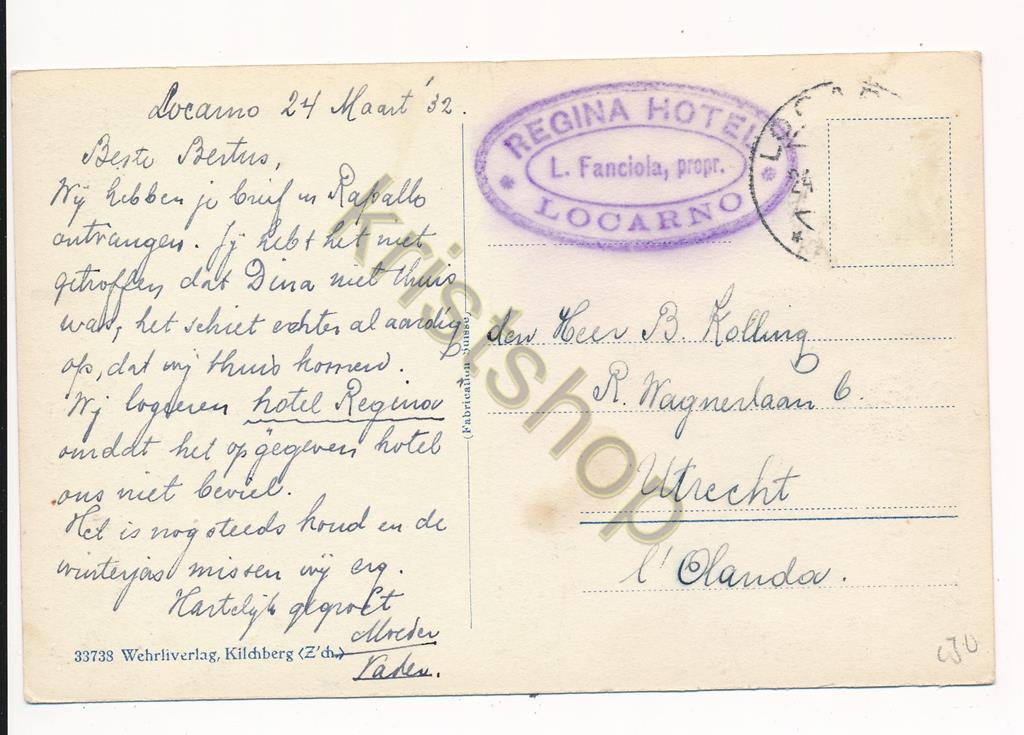 Locarno 24 Maart '32.
Beste Bertus,
Wij hebben je brief in Rapallo
ontvangen. Jij hebt het niet
getroffen dat Dina niet thuis
was, het schiet echter al aardig
op, dat wij thuis komen.
Wij logeeren hotel Regina
omdat het opgegeven hotel
ons niet beviel.
Het is nog steeds koud en de
winterjas missen wij erg.
Hartelijk gegroet
Moeder
Vader.
33738 Wehrliverlag, Kilchberg (Z'ch.)
(Fabrication Suisse)
REGINA HOTEL
L. Fanciola, propr.
LOCARNO
den Heer B. Kolling
R. Wagnerlaan 6.
Utrecht
l'Olanda.
kristshop